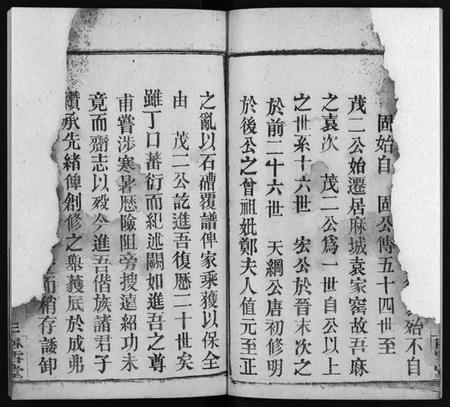 始不自
固始自　固公傳五十四世至
茂二公始遷居麻城袁家窖故吾麻
之袁次　茂二公爲一世自公以上
之世系十六世　宏公於晉末次之
於前二十六世　天綱公唐初修明
於後公之曾祖妣鄭夫人値元至正
之亂以石礶覆譜俾家乘獲以保全
由　茂二公訖進吾復歷二十世矣
雖丁口蕃衍而紀述闕如進吾之尊
甫嘗涉寒暑歷險阻旁搜遠紹功未
竟而齎志以歿今進吾偕族諸君子
纘承先緒俾創修之舉蕆厎於成弗
而稍存諉卸